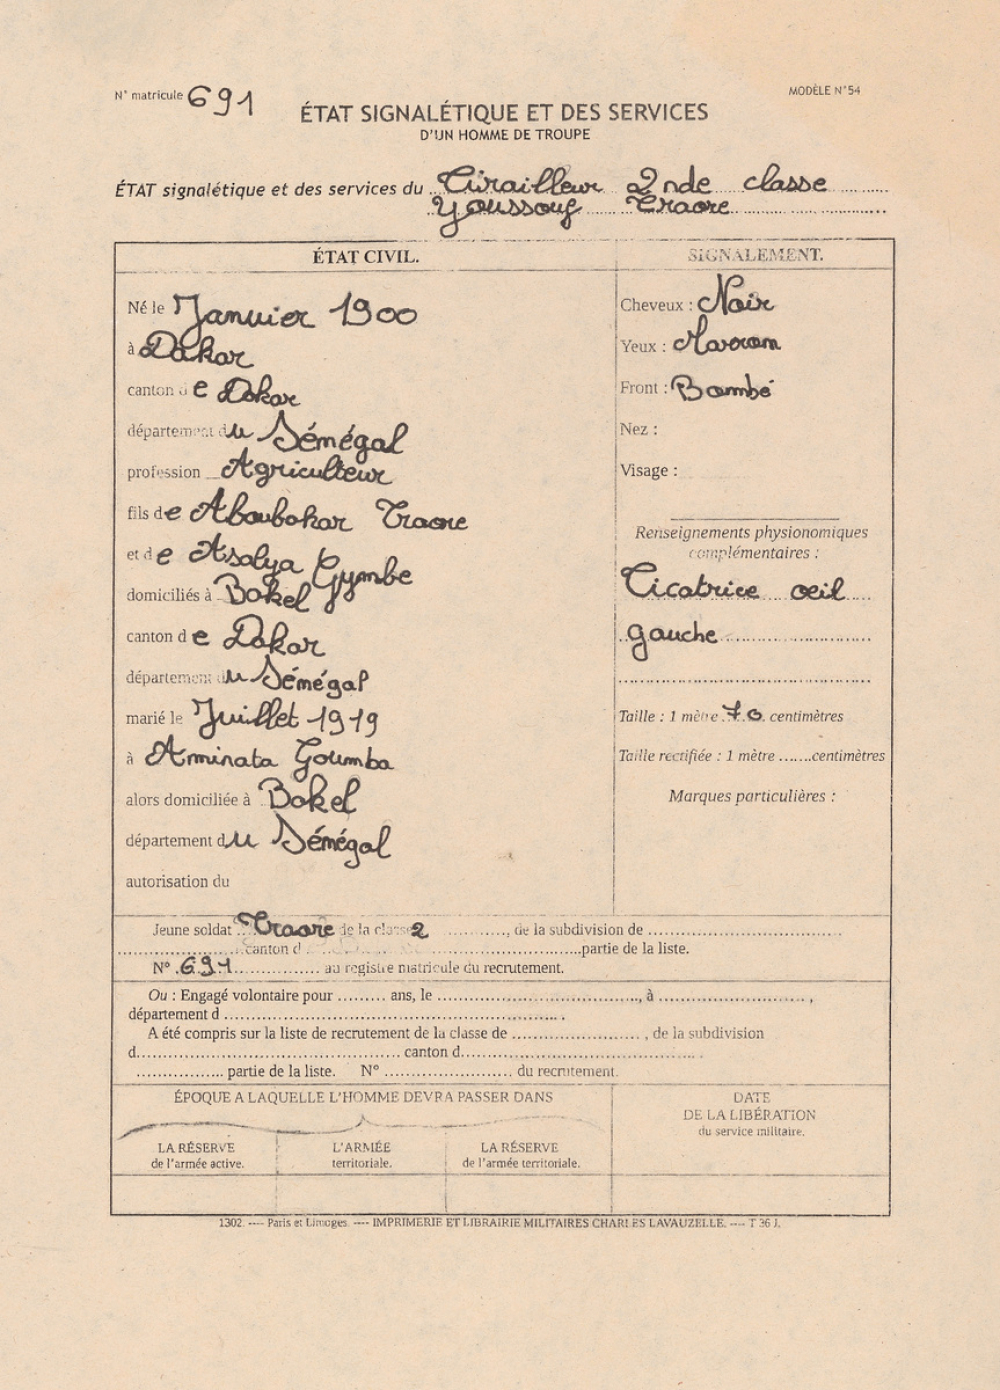 N° matricule 691
MODÈLE N°54
ÉTAT SIGNALÉTIQUE ET DES SERVICES
D'UN HOMME DE TROUPE
ÉTAT signalétique et des services du Tirailleur 2nde classe
Youssouf Traore
ÉTAT CIVIL.
Né le Janvier 1900
à Dakar
canton de Dakar
département du Sénégal
profession Agriculteur
fils de Aboubakar Traore
et de Asalya Gymbe
domiciliés à Bakel
canton de Dakar
département du Sénégal
marié le Juillet 1919
à Aminata Goumba
alors domiciliée à Bakel
département du Sénégal
autorisation du
SIGNALEMENT.
Cheveux : Noir
Yeux : Marron
Front : Bombé
Nez :
Visage :
Renseignements physionomiques
complémentaires :
Cicatrice oeil
gauche
Taille : 1 mètre 70 centimètres
Taille rectifiée : 1 mètre .......centimètres
Marques particulières :
Jeune soldat Traore de la classe 2 .........., de la subdivision de ..........
.......... canton d .......... partie de la liste.
N° 691 .......... au registre matricule du recrutement.
Ou : Engagé volontaire pour ......... ans, le .........., à .........., 
département d ..........
A été compris sur la liste de recrutement de la classe de .........., de la subdivision
d.......... canton d..........
.......... partie de la liste. N° .......... du recrutement.
ÉPOQUE A LAQUELLE L'HOMME DEVRA PASSER DANS
LA RÉSERVE
de l'armée active.
L'ARMÉE
territoriale.
LA RÉSERVE
de l'armée territoriale.
DATE
DE LA LIBÉRATION
du service militaire.
1302. ---- Paris et Limoges. ---- IMPRIMERIE ET LIBRAIRIE MILITAIRES CHARLES LAVAUZELLE. ---- T 36 J.